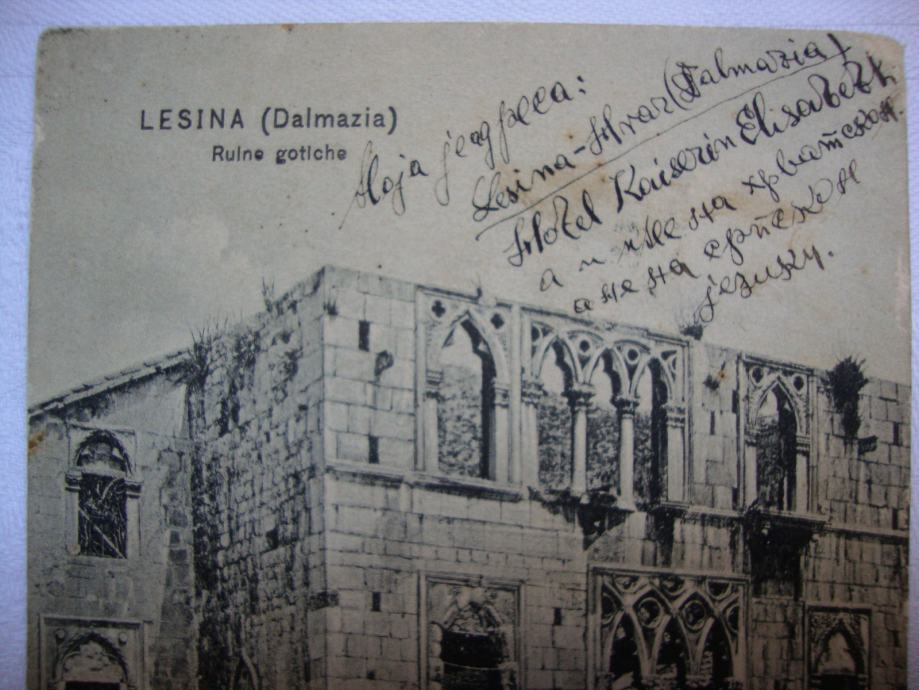 LESINA (Dalmazia)
Ruine gotiche
Моја је адреса:
Lesina-Hvar (Dalmazia)
Hotel Kaiserin Elisabeth.
а на хрватском
а не на српском
језику.